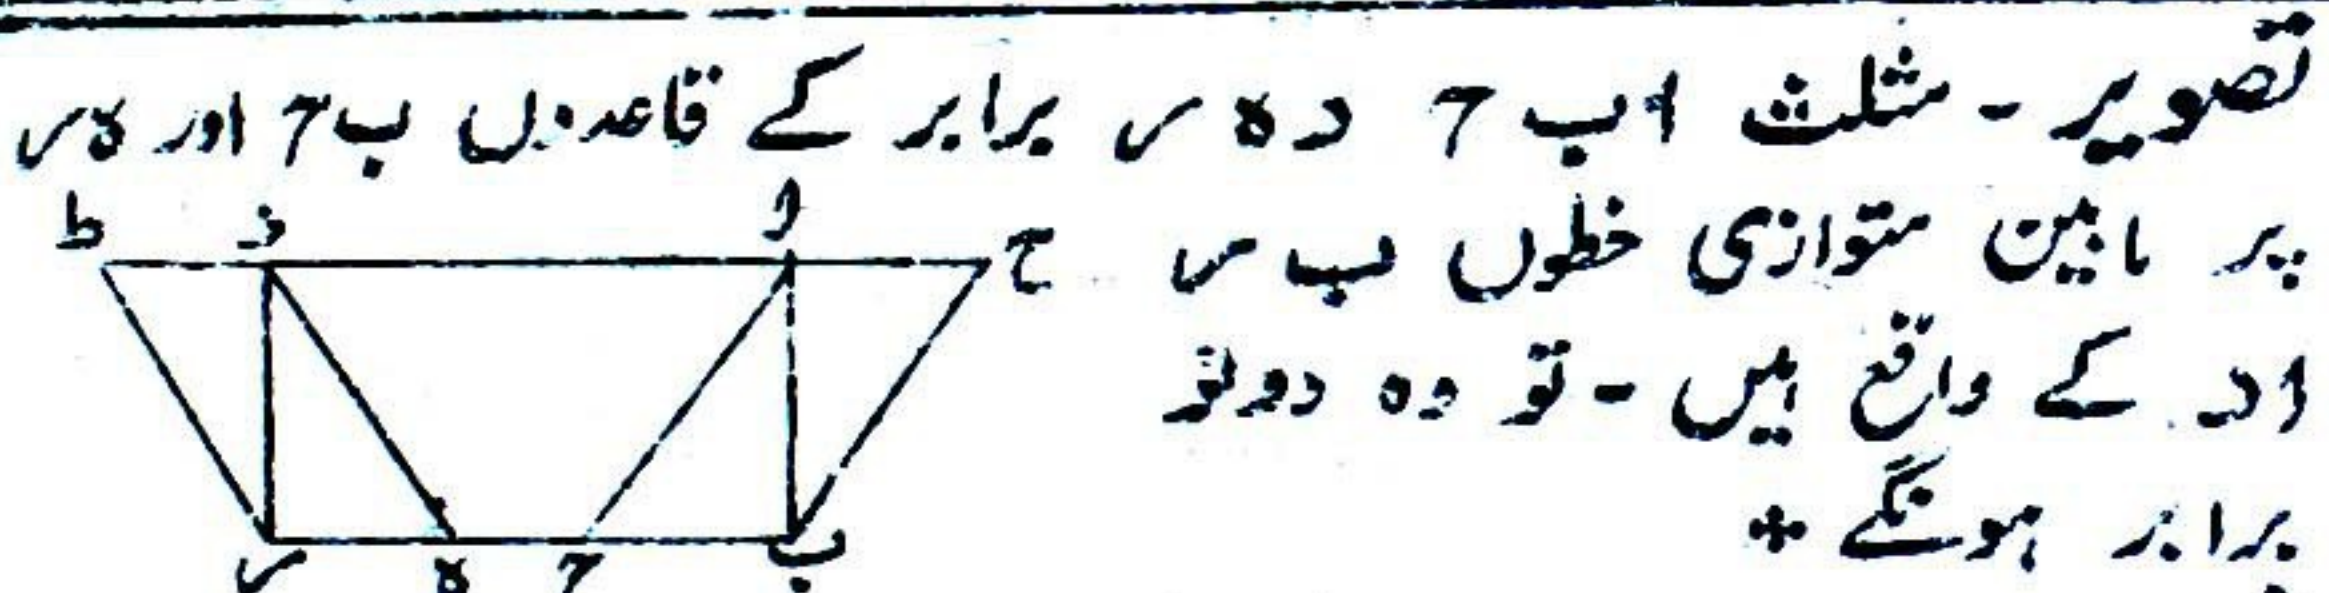 تصویر - مثلث اب ح د ہ ر برابر کے قاعدوں ب ح اور ہ ر
پر مابین متوازی خطوں ب ر
اد کے واقع ہیں - تو وہ دونو
برابر ہونگے +
ط د ا ح
ر ہ ح ب